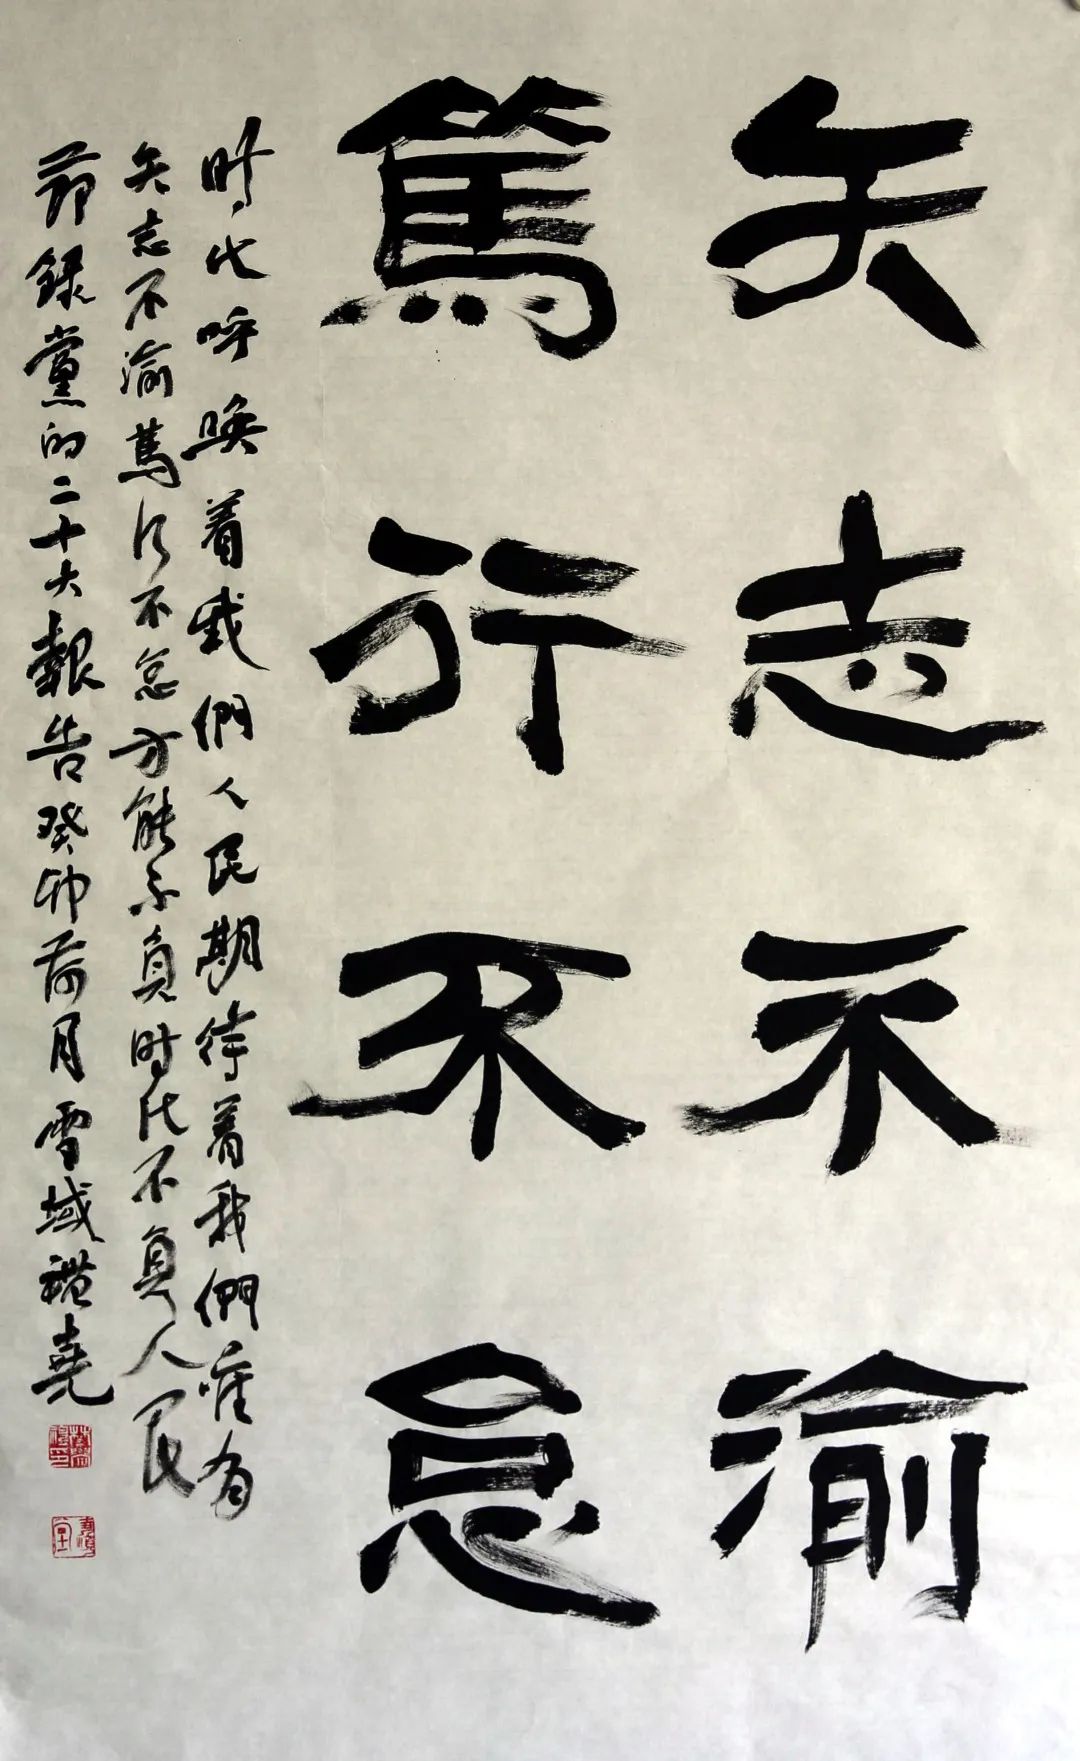 矢志不渝
篤行不怠
时代呼喚着我們人民期待着我們唯有
矢志不渝篤行不怠方能不負时代不負人民
節録黨的二十大報告癸卯荷月雪域禮堯